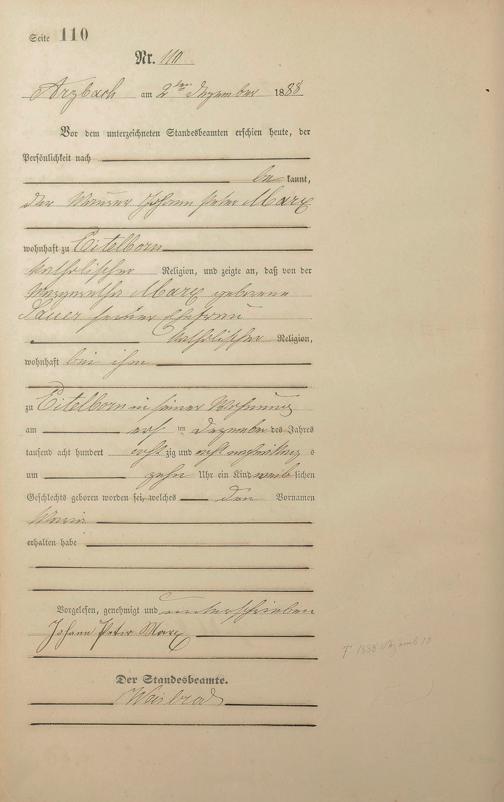 Seite 110
Nr. 110
Arzbach am 2ten Dezember 1888
Vor dem unterzeichneten Standesbeamten erschien heute, der
Persönlichkeit nach
be kannt,
der Maurer Johann Peter Marx
wohnhaft zu Eitelborn
katholischer Religion, und zeigte an, daß von der
Margaretha Marx geborene
Sauer seiner Ehefrau
katholischer Religion,
wohnhaft bei ihm
zu Eitelborn in seiner Wohnung
am im Dezember des Jahres
tausend acht hundert acht zig und acht
um zehn Uhr ein Kind weib lichen
Geschlechts geboren worden sei, welches den Vornamen
Maria
erhalten habe
Vorgelesen, genehmigt und unterschrieben
Johann Peter Marx
Der Standesbeamte.